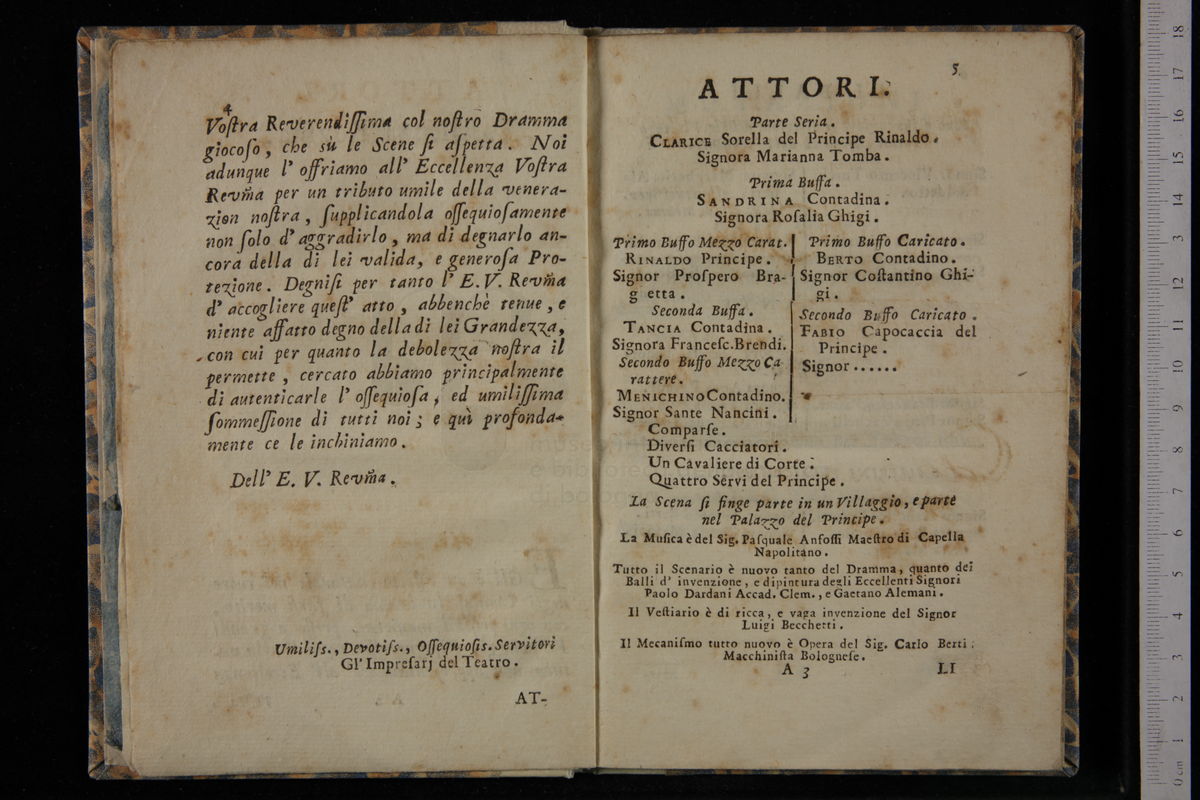 4
Voſtra Reverendiſſima col noſtro Dramma
giocoſo, che sù le Scene ſi aſpetta. Noi
adunque l' offriamo all' Eccellenza Voſtra
Revm̃a per un tributo umile della venera-
zion noſtra, ſupplicandola oſſequioſamente
non ſolo d' aggradirlo, ma di degnarlo an-
cora della di lei valida, e generoſa Pro-
tezione. Degniſi per tanto l' E. V. Revm̃a
d' accogliere queſt' atto, abbenchè tenue, e
niente affatto degno della di lei Grandezza,
con cui per quanto la debolezza noſtra il
permette, cercato abbiamo principalmente
di autenticarle l' oſſequioſa, ed umiliſſima
ſommeſſione di tutti noi; e quì profonda-
mente ce le inchiniamo.
Dell' E. V. Revm̃a.
Umiliſs., Devotiſs., Oſſequioſis. Servitori
Gl' Impreſarj del Teatro.
AT-
5.
ATTORI.
Parte Seria.
CLARICE Sorella del Principe Rinaldo.
Signora Marianna Tomba.
Prima Buffa.
SANDRINA Contadina.
Signora Roſalia Ghigi.
Primo Buffo Mezzo Carat.
RINALDO Principe.
Signor Proſpero Bra-
g etta.
Seconda Buffa.
TANCIA Contadina.
Signora Franceſc. Brendi.
Secondo Buffo Mezzo Ca-
rattere.
MENICHINO Contadino.
Signor Sante Nancini.
Primo Buffo Caricato.
BERTO Contadino.
Signor Coſtantino Ghi-
gi.
Secondo Buffo Caricato.
FABIO Capocaccia del
Principe.
Signor......
Comparſe.
Diverſi Cacciatori.
Un Cavaliere di Corte.
Quattro Servi del Principe.
La Scena ſi finge parte in un Villaggio, e parte
nel Palazzo del Principe.
La Muſica è del Sig. Paſquale Anfoſſi Maeſtro di Capella
Napolitano.
Tutto il Scenario è nuovo tanto del Dramma, quanto dei
Balli d' invenzione, e dipintura degli Eccellenti Signori
Paolo Dardani Accad. Clem., e Gaetano Alemani.
Il Veſtiario è di ricca, e vaga invenzione del Signor
Luigi Becchetti.
Il Mecaniſmo tutto nuovo è Opera del Sig. Carlo Berti
Macchiniſta Bologneſe.
A 3
LI